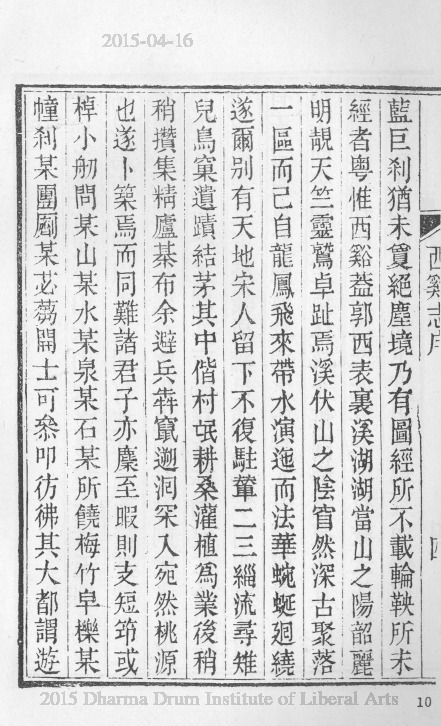 2015-04-16
西谿志序
四
藍巨刹猶未夐絕塵境乃有圖經所不載輪鞅所未
經者粵惟西谿葢郭西表裏溪湖湖當山之陽韶麗
明靚天竺靈鷲卓趾焉溪伏山之陰窅然深古聚落
一區而己自龍鳳飛來帶水演迤而法華蜿蜒廻繞
遂爾別有天地宋人留下不復駐輦二三緇流尋雉
兒鳥窠遺蹟結茅其中偕村氓耕桑灌植爲業後稍
稍攢集精廬棊布余避兵犇竄遡洄罙入宛然桃源
也遂卜築焉而同難諸君子亦麇至暇則支短笻或
棹小舠問某山某水某泉某石某所饒梅竹皁櫟某
幢刹某團圝某苾蒭開士可叅叩彷彿其大都謂遊
2015 Dharma Drum Institute of Liberal Arts
10